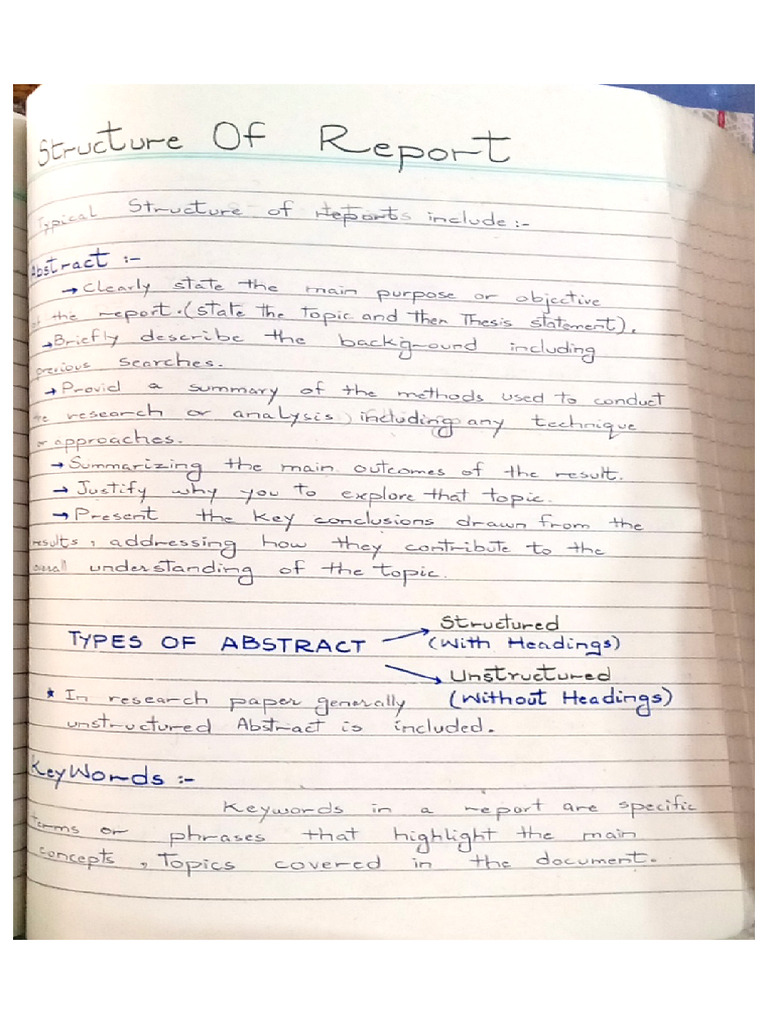 Structure Of Report
Typical Structure of Reports include :-
Abstract :-
→ Clearly state the main purpose or objective
of the report. (state the topic and then Thesis statement).
→ Briefly describe the background including
previous searches.
→ Provid a summary of the methods used to conduct
the research or analysis, including any technique
or approaches.
→ Summarizing the main outcomes of the result.
→ Justify why you to explore that topic.
→ Present the key conclusions drawn from the
results, addressing how they contribute to the
overall understanding of the topic.
TYPES OF ABSTRACT → Structured
(With Headings)
→ Unstructured
* In research paper generally (Without Headings)
unstructured Abstract is included.
KeyWords :-
Keywords in a report are specific
terms or phrases that highlight the main
concepts, Topics covered in the document.